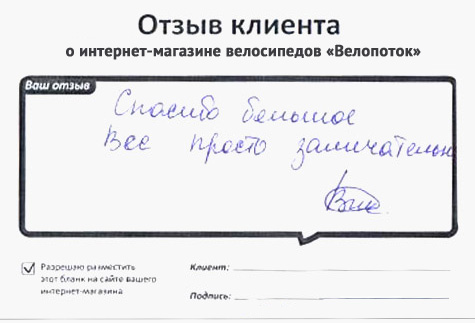 Отзыв клиента
о интернет-магазине велосипедов «Велопоток»
Ваш отзыв
Спасибо большое
Все просто замечательн
Разрешаю разместить
этот бланк на сайте вашего
интернет-магазина
Клиент:
Подпись: